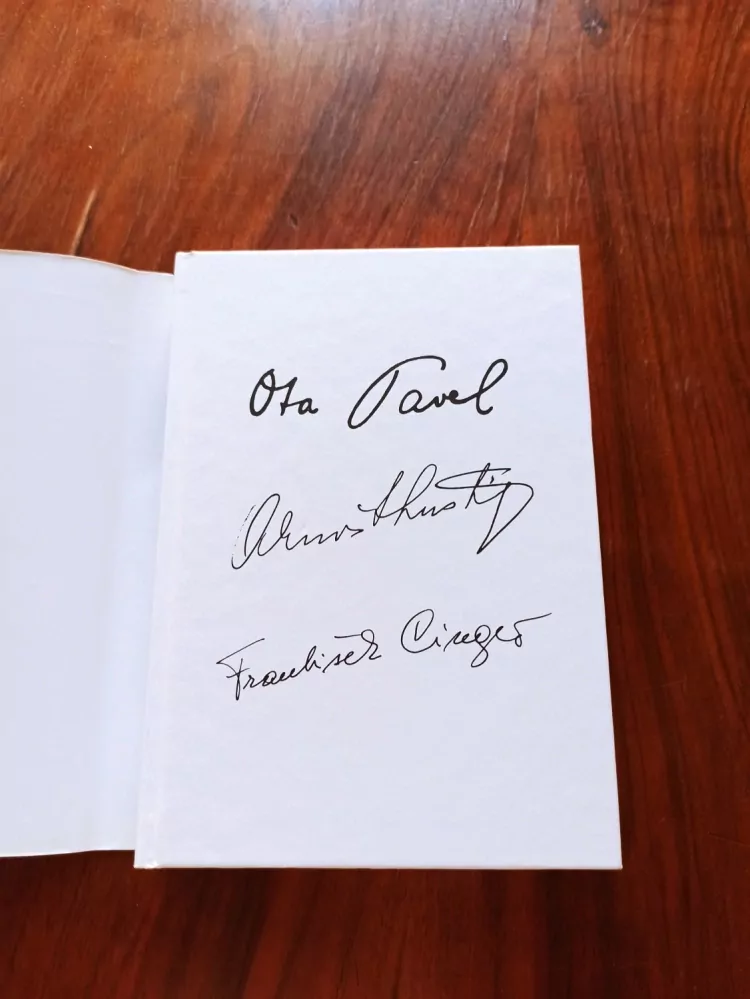 Ota Pavel
Arnošt Lustig
František Cinger